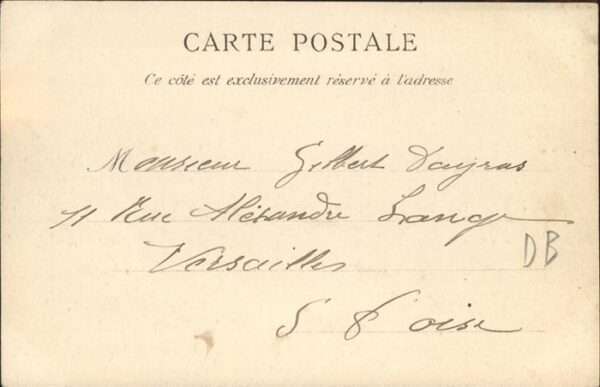 CARTE POSTALE
Ce côté est exclusivement réservé à l'adresse
Monsieur Gilbert Dayras
11 Rue Alexandre Lange
Versailles
S & oise
DB